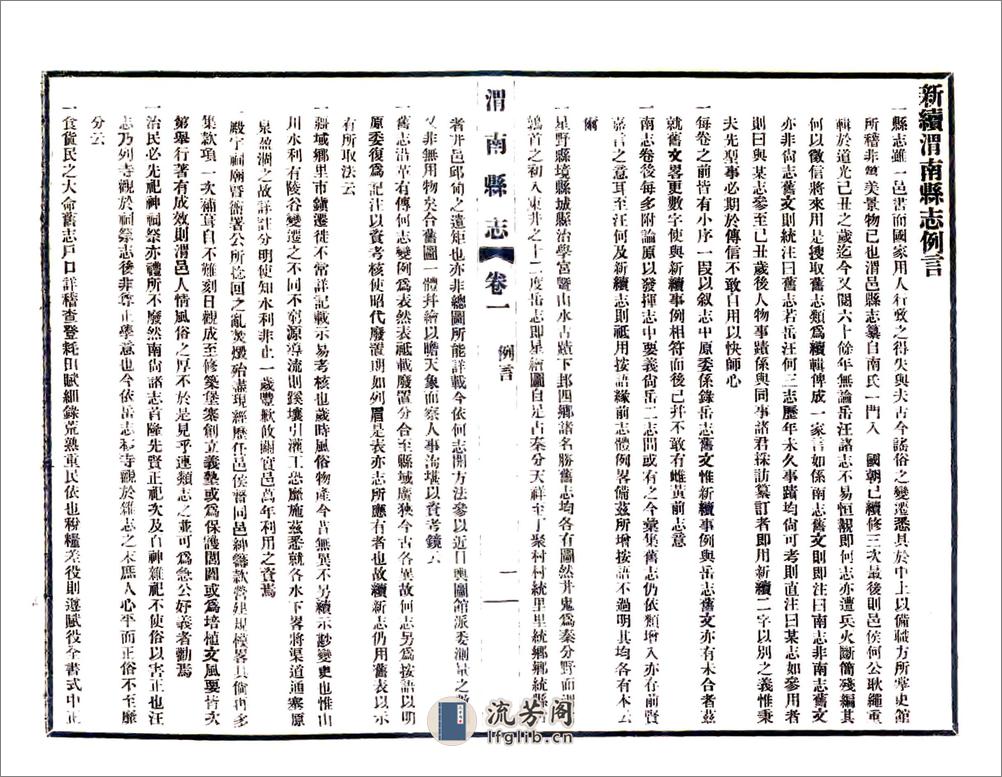 新續渭南縣志例言
一縣志雖一邑書而國家用人行政之得失與夫古今謠俗之變遷悉具於中上以備職方所掌史館
所稽非僅美景物已也渭邑縣志纂自南氏一門入　國朝已續修三次最後則邑侯何公耿繩重
輯於道光己丑之歲迄今又閱六十餘年無論岳汪諸志不易恒覯即何志亦遭兵火斷簡殘編其
何以徵信將來用是搜取舊志類爲續輯俾成一家言如係南志舊文則即注曰南志非南志舊文
亦非尙志舊文則統注曰舊志若岳汪何三志歷年未久事蹟均尙可考則直注曰某志如參用者
則曰與某志參至己丑歲後人物事蹟係與同事諸君採訪纂訂者即用新續二字以別之義惟秉
夫先型事必期於傳信不敢自用以快師心
一每卷之前皆有小序一段以叙志中原委係錄岳志舊文惟新續事例與岳志舊文亦有未合者茲
就舊文畧更數字使與新續事例相符而後已幷不敢有雌黃前志意
一南志卷後每多附論原以發揮志中要義尙岳二志間或有之今彙集舊志仍依類增入亦存前賢
嘉言之意耳至汪何及新續志則祗用按語緣前志體例畧備茲所增按語不過明其均各有本云
爾
一星野縣境縣城縣治學宮曁山水古蹟下邽四鄉諸名勝舊志均各有圖然井鬼爲秦分野而渭
鶉首之初入東井之十二度岳志即星繪圖自是占秦分天祥至丁聚村村統里里統鄉鄉統縣
者井邑邱甸之遺矩也亦非總圖所能詳載今依何志開方法參以近日輿圖館派委測量之
又非無用物矣合舊圖一體幷繪以瞻天象而察人事洵堪以資考鏡云
一舊志沿革有傳何志變例爲表然表祗載廢置分合至縣域廣狹今古各異故何志另爲按語以明
原委復爲記注以資考核使昭代廢置朗如列眉是表亦志所應有者也故續新志仍用舊表以示
有所取法云
一疆域鄉里市鎭遷徙不常詳記載示易考核也歲時風俗物產今昔無異不另續示尠變更也惟山
川水利有陵谷變遷之不同不窮源導流則蹊壤引灌工恐靡施茲悉就各水下畧將渠道通塞原
泉盈涸之故詳註分明使知水利非止一歲豐歉攸關實邑萬年利用之資焉
一殿宇祠廟曁衙署公所捻囘之亂焚燬殆盡現經歷任邑侯督同邑紳籌款營建規模畧具倘再多
集款項一次補葺自不難刻日觀成至修築堡寨創立義塾或爲保護閭閻或爲培植文風要皆次
第舉行著有成效則渭邑人情風俗之厚不於是見乎連類志之並可爲急公好義者勸焉
一治民必先祀神祠祭亦禮所不廢然南尙諸志首隆先賢正祀次及百神雜祀不使俗以害正也汪
志乃列寺觀於祠祭志後非尊正學意也今依岳志移寺觀於雜志之末庶人心平而正俗不至靡
分云
一食貨民之大命舊志戶口詳稽查登耗田賦細錄荒熟重民依也粉糧差役則遵賦役全書式中正
渭南縣志
卷一
例言
一
流芳阁
lfglib.cn